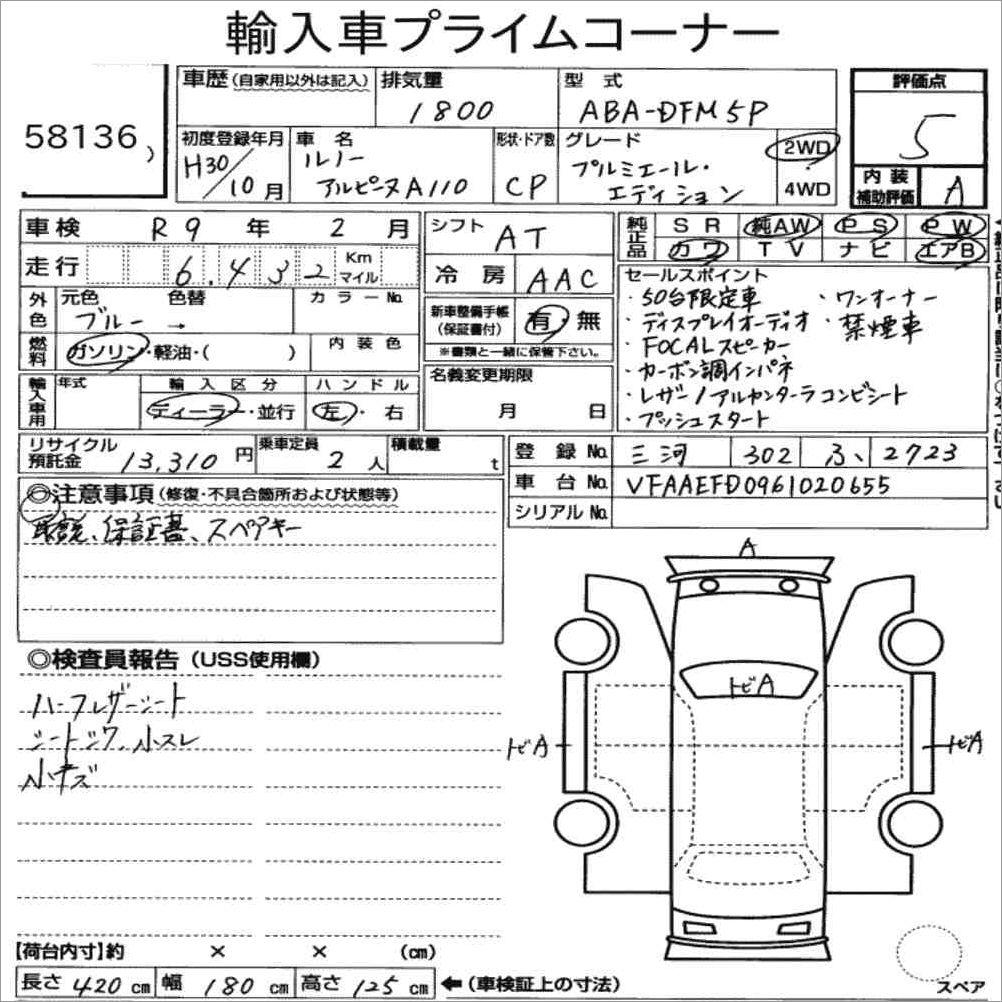 輸入車プライムコーナー
58136
車歴(自家用以外は記入) 排気量 1800 型式 ABA-DFM5P
評価点 5
内装補助評価 A
初度登録年月 H30/10月 車名 ルノー アルピーヌA110 形状・ドア数 CP グレード プルミエール・エディション 2WD 4WD
車検 R9年2月
走行 6.432 Km マイル
外色 元色 ブルー 色替 → カラーNo.
燃料 ガソリン・軽油・( ) 内装色
輸入車用 年式 輸入区分 ディーラー・並行 ハンドル 左・右
リサイクル預託金 13,310円 乗車定員 2人 積載量 t
シフト AT
冷房 AAC
新車整備手帳(保証書付) 有 無
※書類と一緒に保管下さい。
名義変更期限 月 日
純正品 SR 純AW PS PW
カワ TV ナビ エアB
セールスポイント
・50台限定車 ・ワンオーナー
・ディスプレイオーディオ ・禁煙車
・FOCALスピーカー
・カーボン調インパネ
・レザー/アルカンターラコンビシート
・プッシュスタート
登録No. 三河 302 ふ 2723
車台No. VFAAEFD0961020655
シリアルNo.
◎注意事項(修復・不具合箇所および状態等)
取説、保証書、スペアキー
◎検査員報告(USS使用欄)
ハーフレザーシート
シートシワ、小スレ
小キズ
A
トビA
トビA
トビA
【荷台内寸】約 × × (cm)
長さ 420 cm 幅 180 cm 高さ 125 cm ←(車検証上の寸法)
スペア